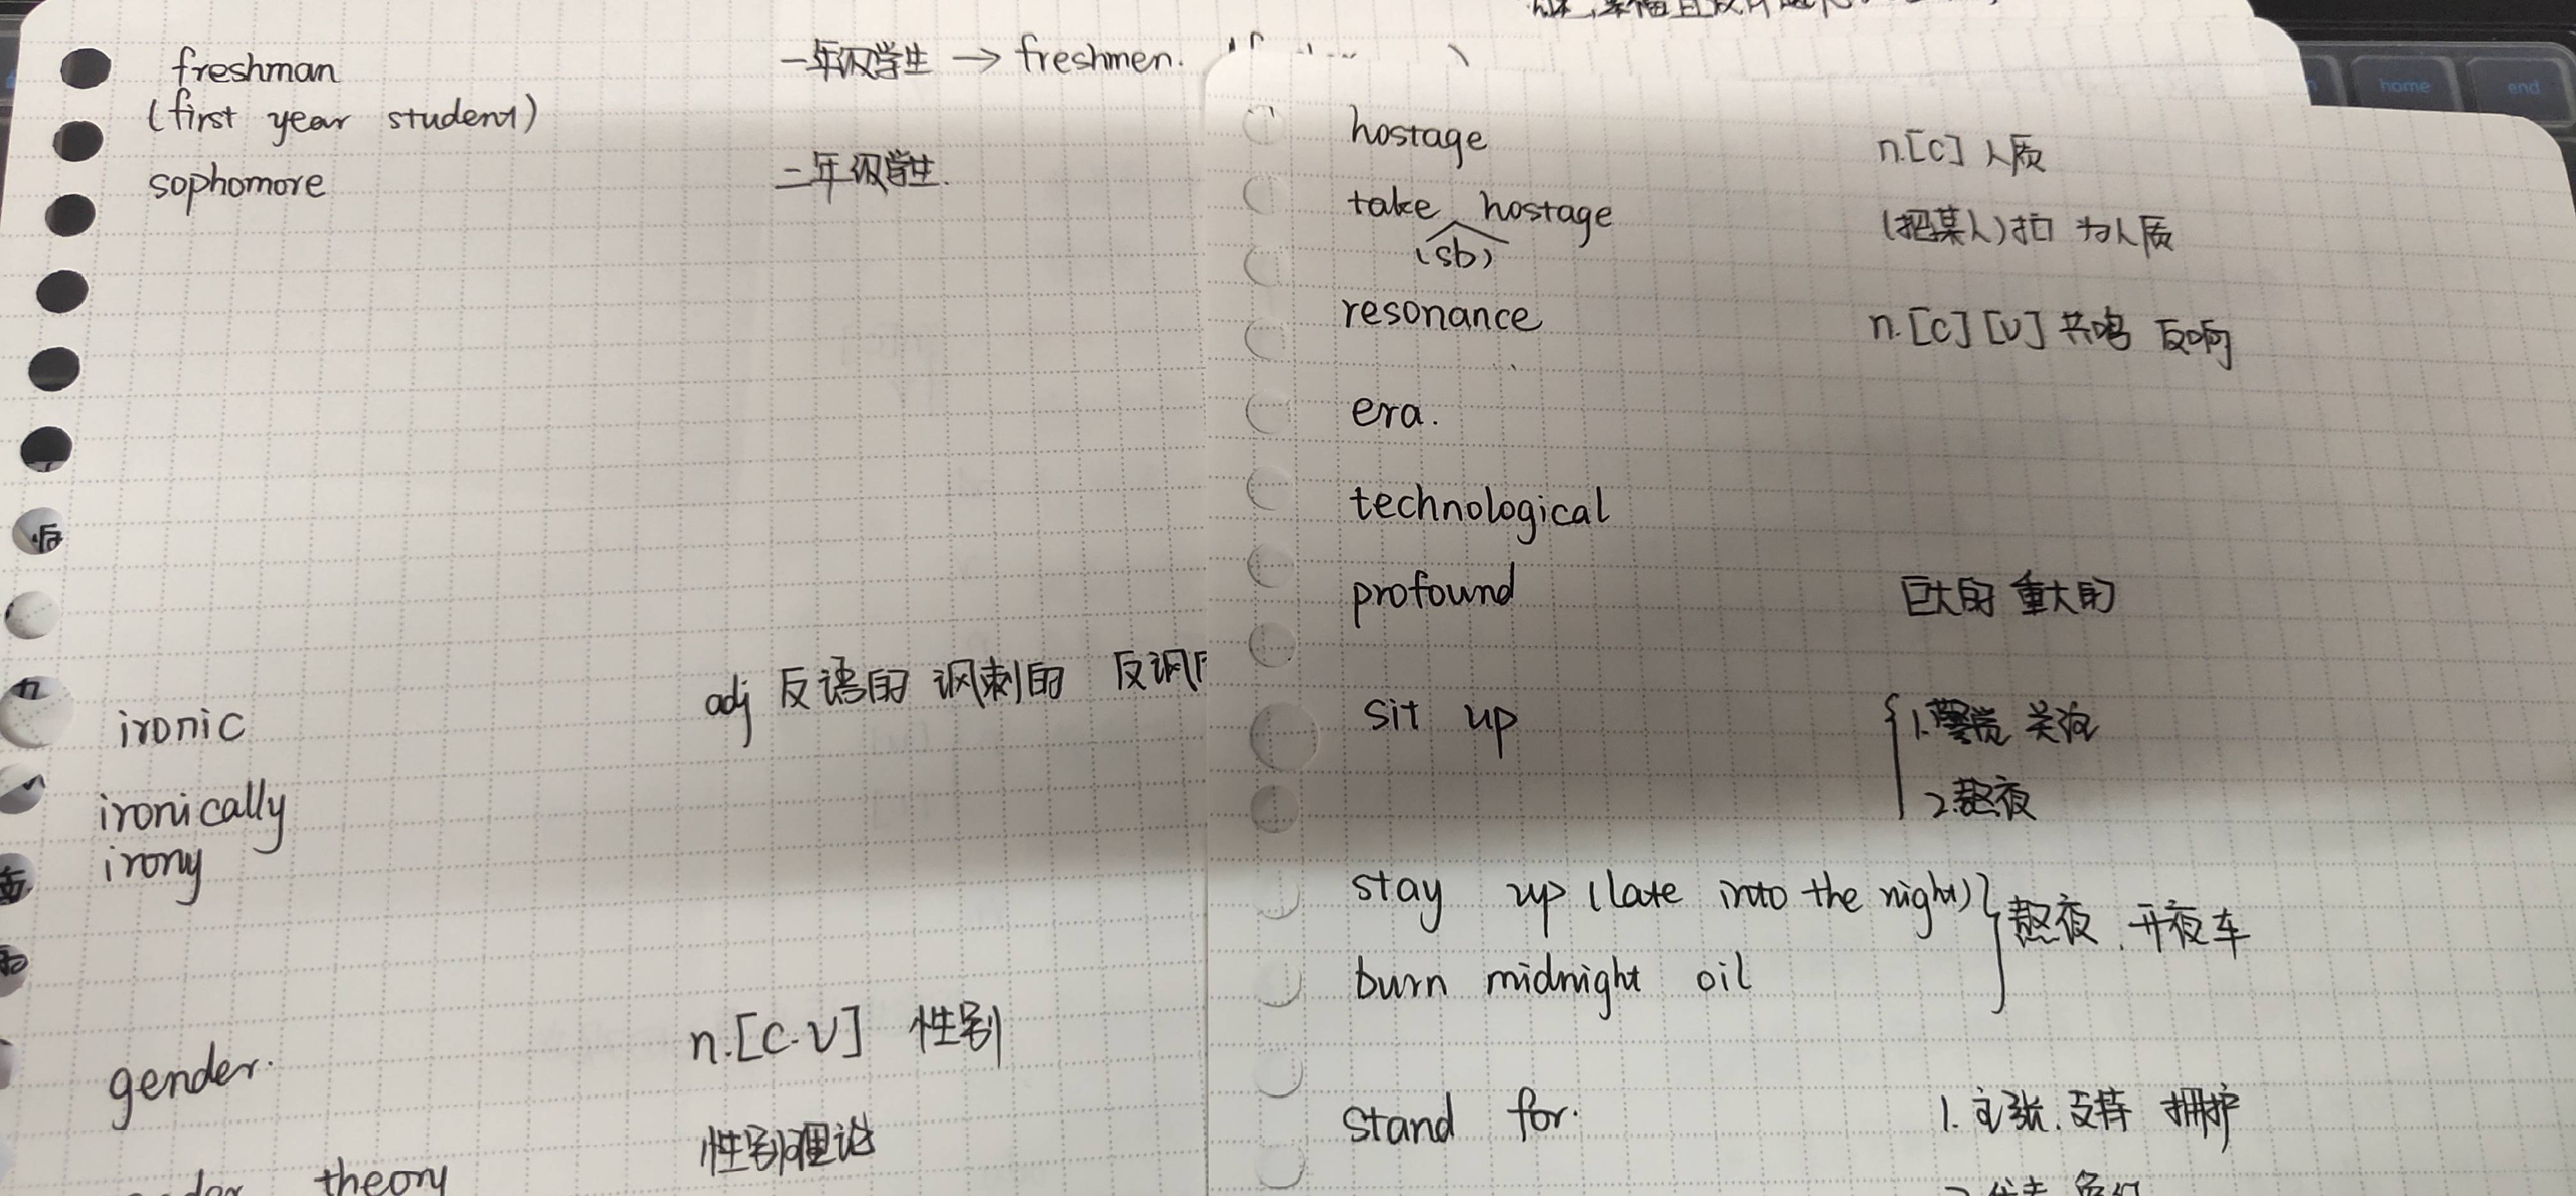 freshman
一年级学生 → freshmen.
(first year student)
sophomore
二年级学生.
ironic
adj 反语的 讽刺的 反讽
ironically
irony
gender.
n.[C.U] 性别
theory
性别理论
hostage
n.[C] 人质
take hostage
(sb)
(把某人)扣为人质
resonance
n.[C][U] 共鸣 反响
era.
technological
profound
巨大的 重大的
sit up
1.警觉 关注
2.熬夜
stay up (late into the night)
熬夜.开夜车
burn midnight oil
stand for.
1.主张.支持 拥护
home
end